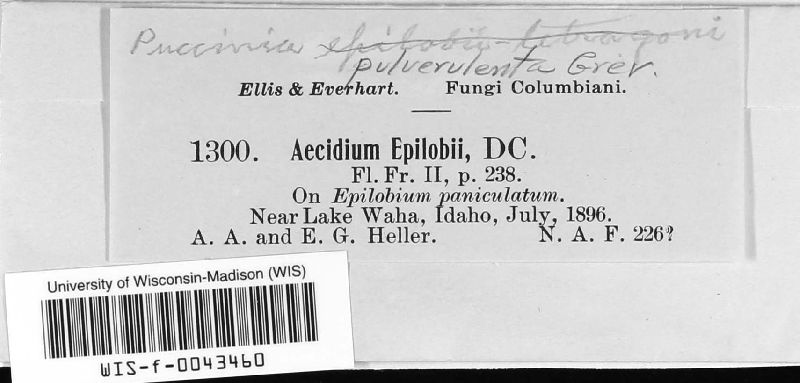 Puccinia epilobii-tetragoni
pulverulenta Grev.
Ellis & Everhart. Fungi Columbiani.
1300. Aecidium Epilobii, DC.
Fl. Fr. II, p. 238.
On Epilobium paniculatum.
Near Lake Waha, Idaho, July, 1896.
A. A. and E. G. Heller. N. A. F. 226?
University of Wisconsin-Madison (WIS)
WIS-f-0043460